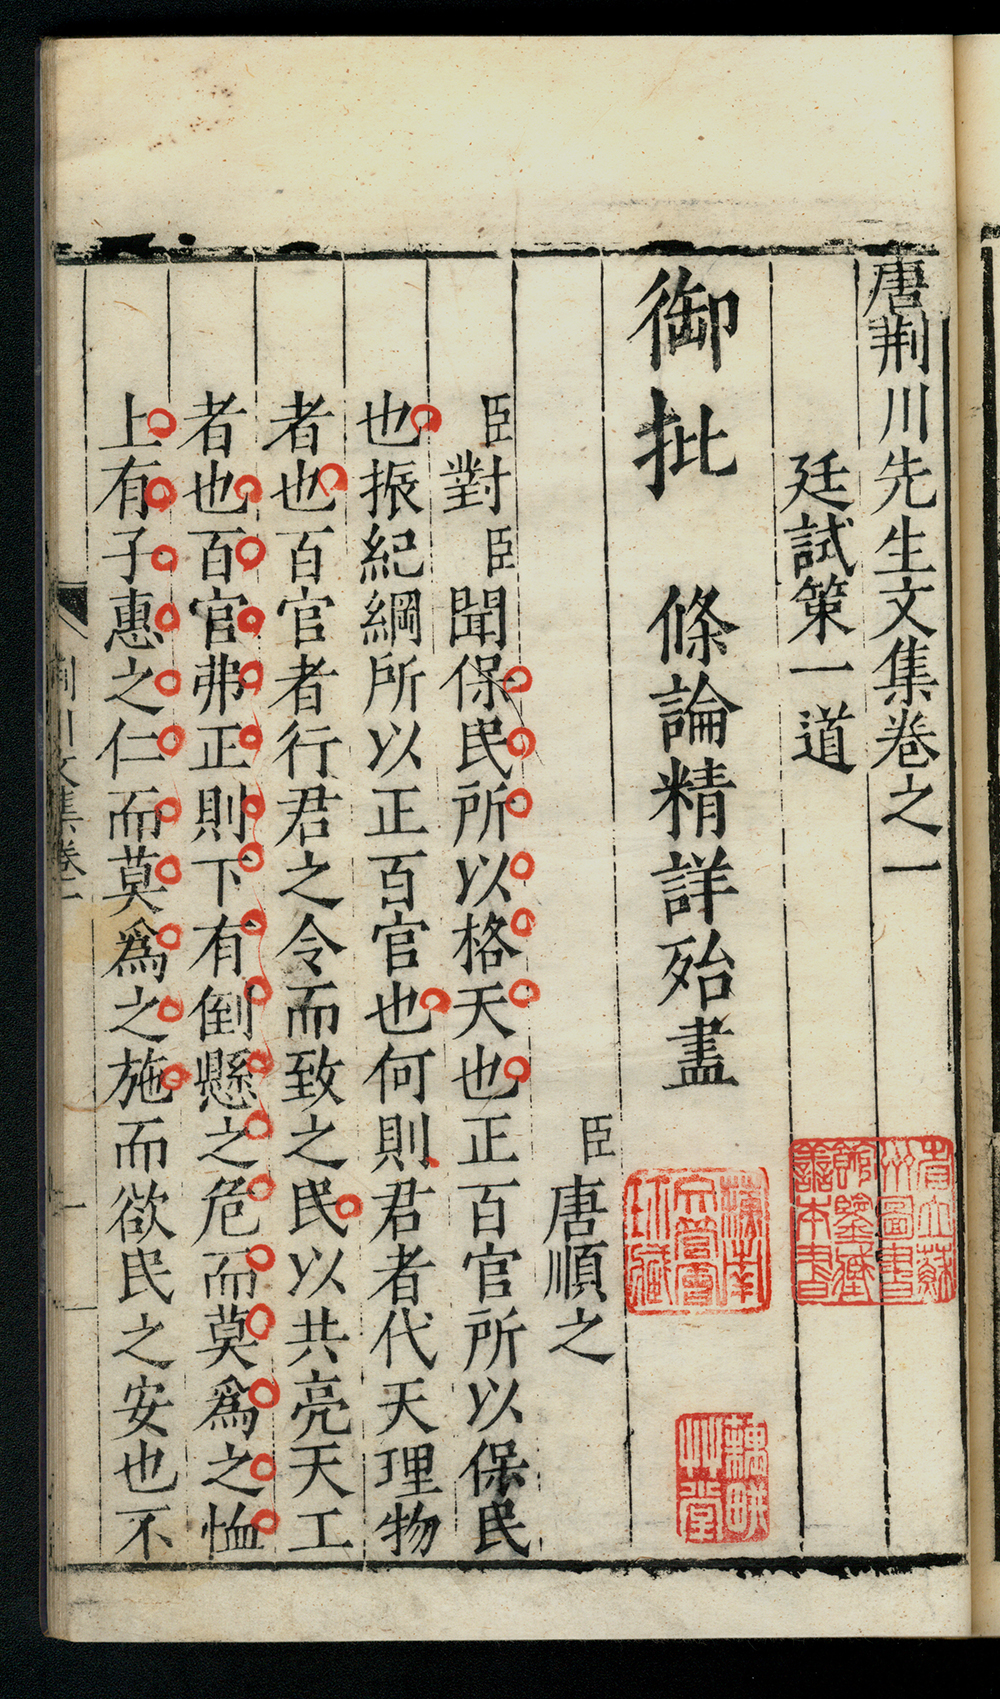 唐荆川先生文集卷之一
廷試策一道
御批　條論精詳殆盡
臣唐順之
臣對臣聞保民所以格天也正百官所以保民
也振紀綱所以正百官也何則君者代天理物
者也百官者行君之令而致之民以共亮天工
者也百官弗正則下有倒懸之危而莫爲之恤
上有子惠之仁而莫爲之施而欲民之安也不
荆川文集卷一
一
藕畊艸堂